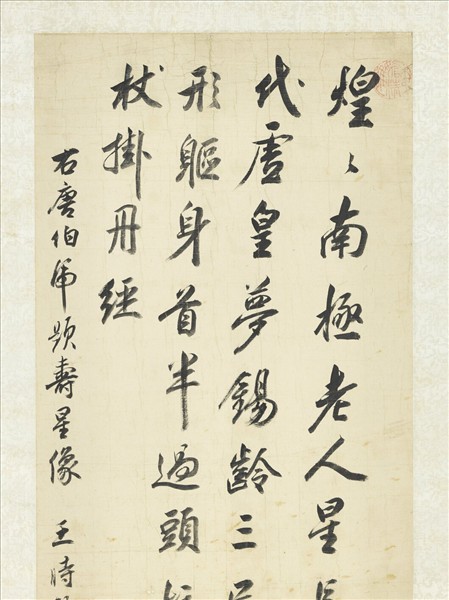 煌〻南極老人星
代虛皇夢錫齡三
形軀身首半過頭
杖掛丹經
右唐伯虎題壽星像 王時